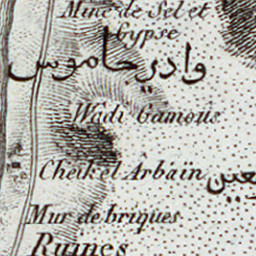 Mine de Sel et
Gypse
وادي جاموس
Wâdi Gamoüs
Cheik el Arbäïn
Mur de briques
Ruines